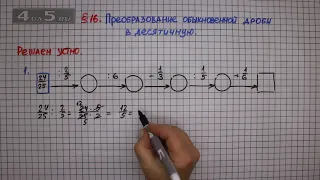 §16. Преобразование обыкновенной дроби
в десятичную.
Решаем устно.
1. 24/25 : 2/5 : 6 - 1/3 : 1/5 + 1/6
24/25 : 2/5 = 24 · 5 / 25 · 2 = 12/5 =